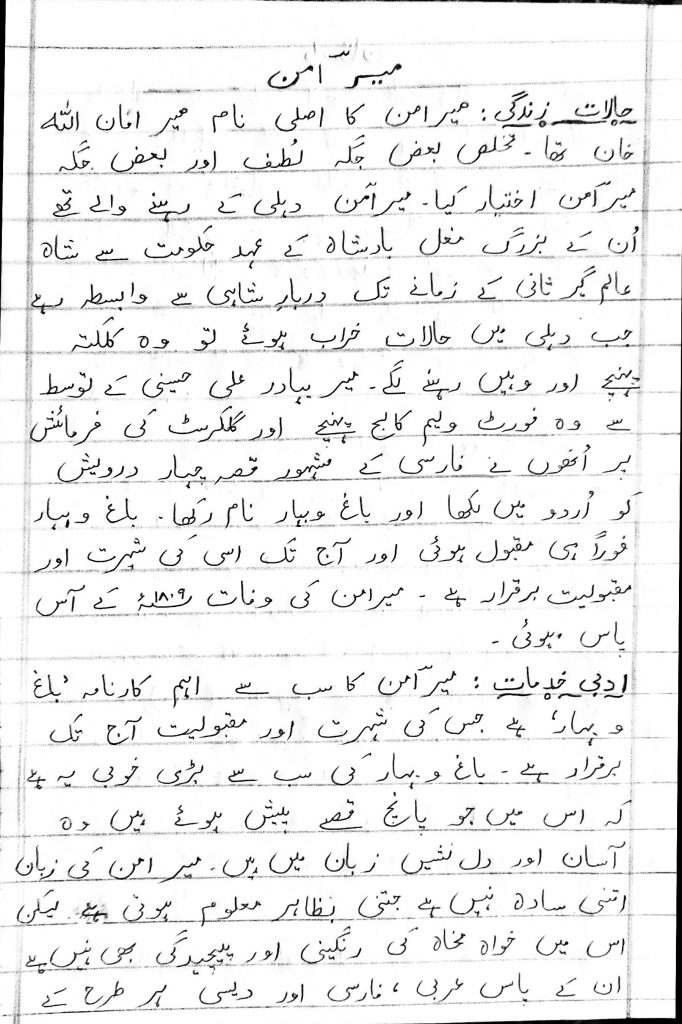 میر امن
حالات زندگی : میر امن کا اصلی نام میر امان اللہ
خان تھا۔ تخلص بعض جگہ لُطف اور بعض جگہ
میر امّن اختیار کیا۔ میر امّن دہلی کے رہنے والے تھے
اُن کے بزرگ مغل بادشاہ کے عہد حکومت سے شاہ
عالم گیر ثانی کے زمانے تک دربار شاہی سے وابسطہ رہے
جب دہلی میں حالات خراب ہوئے تو وہ کلکتہ
پہنچے اور وہیں رہنے لگے۔ میر بہادر علی حسینی کے توسط
سے وہ فورٹ ولیم کالج پہنچے اور گلکرسٹ کی فرمائش
پر اُنھوں نے فارسی کے مشہور قصہ چہار درویش
کو اُردو میں لکھا اور باغ وبہار نام رکھا۔ باغ وبہار
فوراً ہی مقبول ہوئی اور آج تک اسی کی شہرت اور
مقبولیت برقرار ہے ۔ میر امن کی وفات ۱۸۰۹ء کے آس
پاس ہوئی ۔
ادبی خدمات : میر امّن کا سب سے اہم کارنامہ ‘باغ
و بہار’ ہے جس کی شہرت اور مقبولیت آج تک
برقرار ہے ۔ باغ و بہار کی سب سے بڑی خوبی یہ ہے
کہ اس میں جو پانچ قصے پیش ہوئے ہیں وہ
آسان اور دل نشیں زبان میں ہیں۔ میر امن کی زبان
اتنی سادہ نہیں ہے جتنی بظاہر معلوم ہوتی ہے لیکن
اس میں خواہ مخاہ کی رنگینی اور پیچیدگی بھی نہیں ہے
ان کے پاس عربی ، فارسی اور دیسی ہر طرح کے